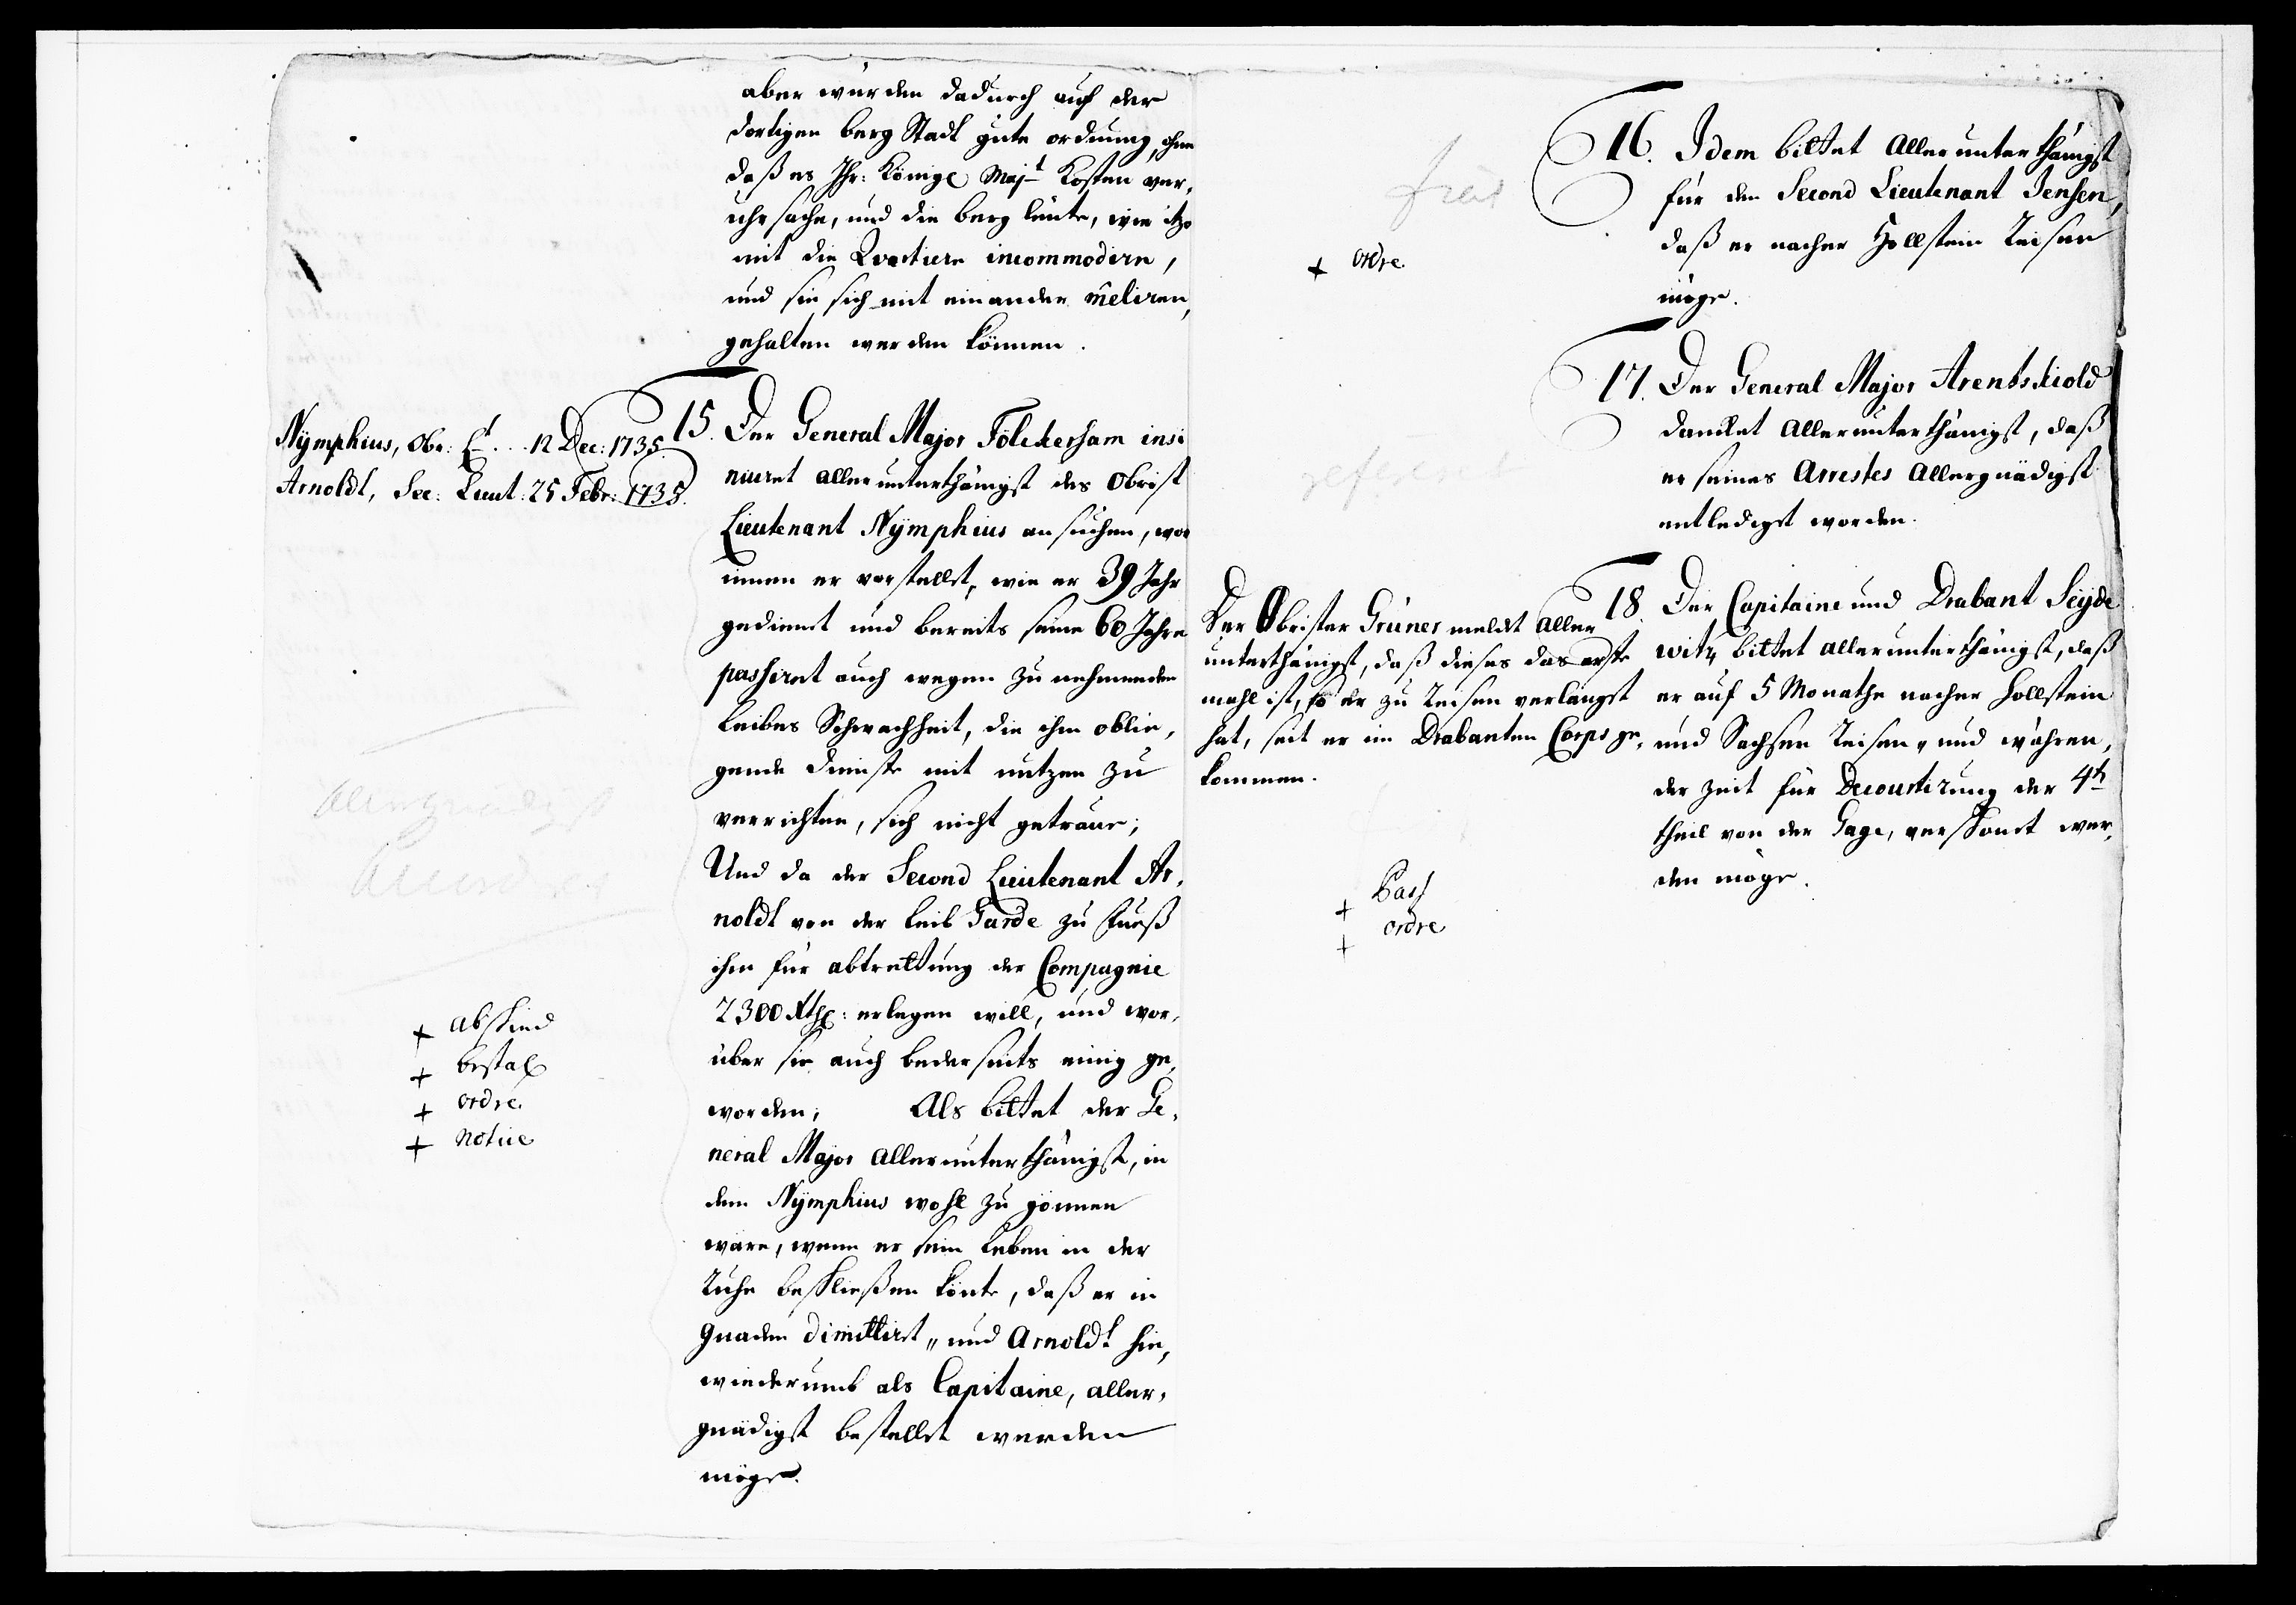 aber würden dadurch auf der
dortigen berg Stadt gute ordnung, ohne
daß es Ihr: Königl Majt Kosten ver,
uhrsache, und die berg leute, wie itzo
mit die Qvartiere incommodirn,
und sie sich mit einander meliren,
gehalten werden können.
Nÿmphius, Obr: Lt. .. 12 Dec: 1735.
Arnoldt, Sec: Leut: 25 Febr: 1735.
15. Der General Major Fölckersham insi
nuiret allerunterthänigst des Obrist
Lieutenant Nÿmphius ansuchen, wor
innen er vorstellet, wie er 39 Jahr
gedienet und bereits seine 60 Jahre
passiret auch wegen zu nehmenden
Leibes Schwachheit, die ihm oblie,
gende dienste mit nutzen zu
verrichten, sich nicht getraue;
Und da der Second Lieutenant Ar,
noldt von der Leib Garde zu Fueß
ihm für abtrettung der Compagnie
2300 Rthl: erlegen will, und wor,
über sie auch bederseits einig ge,
worden; Als bittet der Ge,
neral Major allerunterthänigst, in
dem Nÿmphius wohl zu gönnen
wäre, wenn er sein Leben in der
Ruhe beschließen könte, daß er in
Gnaden dimittiret „ und Arnoldt hin,
wiederumb als Capitaine, aller,
gnädigst bestellet werden
möge.
allergnädigst
+ abschied
+ bestal
+ ordre.
+ notice
16. Idem bittet Allerunterthänigst
für den Second Lieutenant Jensen,
daß er nacher Hollstein Reisen
möge.
+ ordre.
17. Der General Major Arenskiold
dancket Allerunterthänigst, daß
er seines Arrestes Allergnädigst
entlediget worden.
18. Der Capitaine und Drabant Seÿde
witz bittet allerunterthänigst, daß
er auf 5 Monathe nacher Hollstein
und Sachsen Reisen „ und währen,
der Zeit für Decourtirung der 4te
theil von der Gage, verschonet wer,
den möge.
Der Obrister Grüner meldet Aller
unterthänigst, daß dieses das erste
mahl ist, so er zu Reisen verlanget
hat, seit er im Drabanten Corps ge,
kommen.
+ Pass
+ ordre